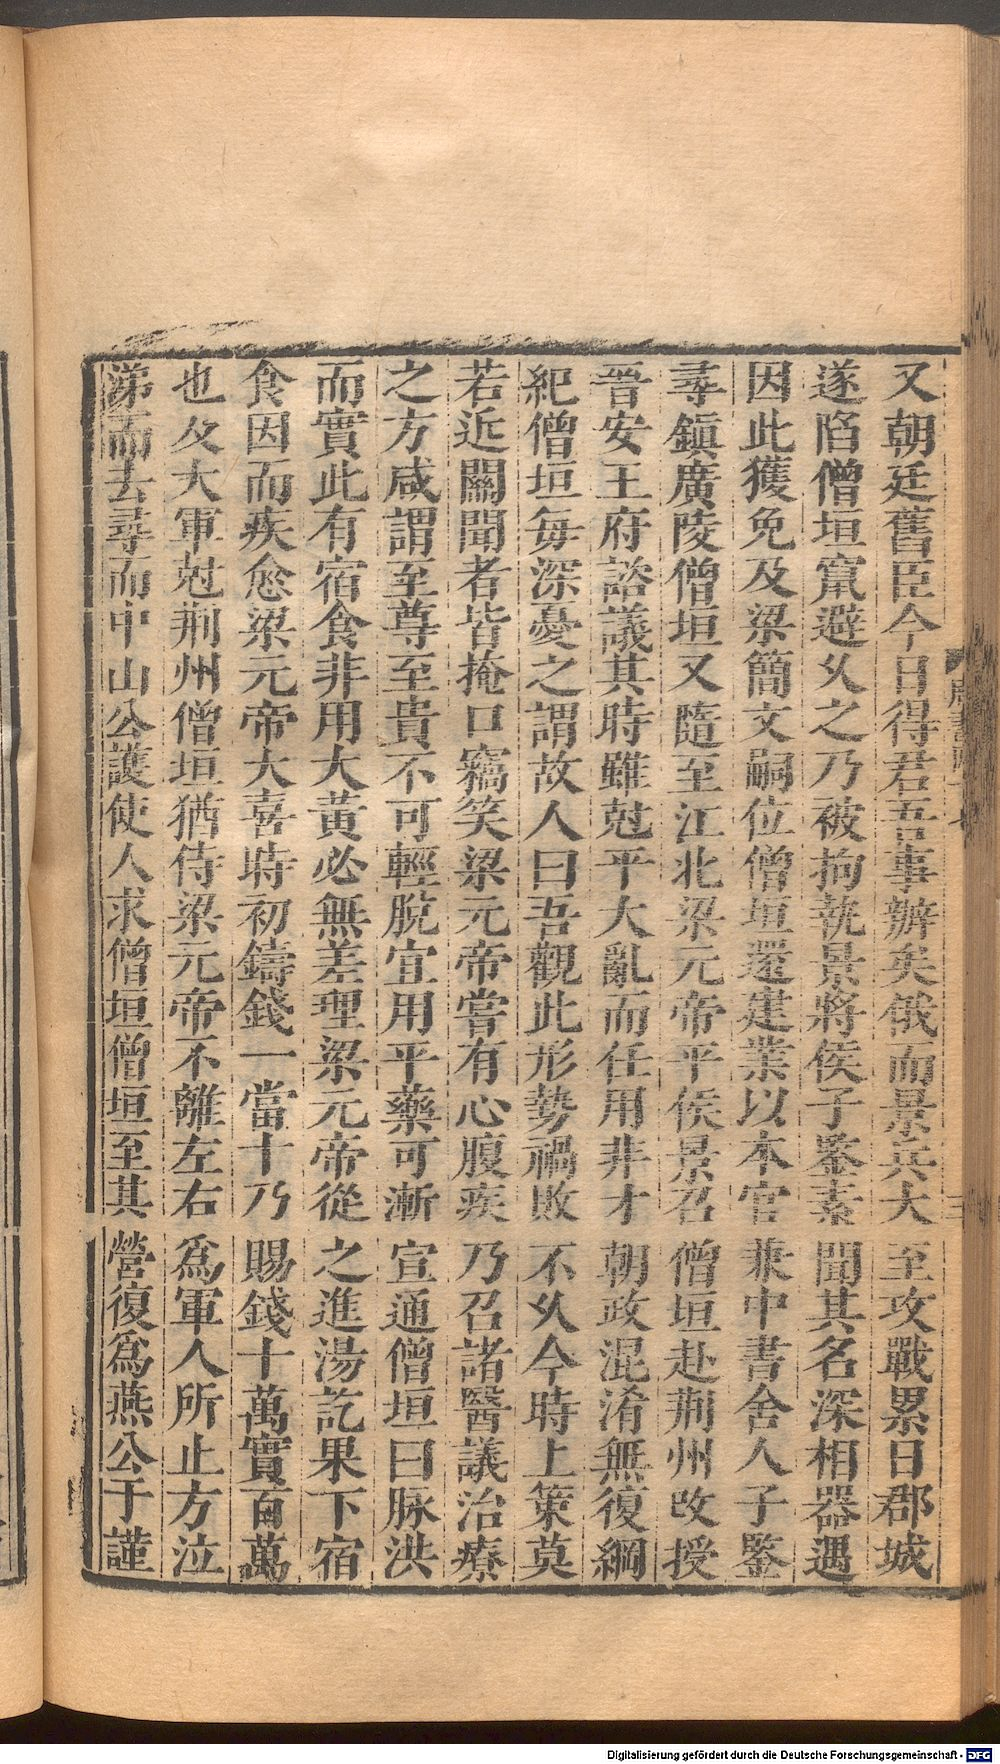 又朝廷舊臣今日得君吾事辦矣俄而景兵大至攻戰累日郡城
遂陷僧垣竄避乆之乃被拘執景將侯子鑒素聞其名深相器遇
因此獲免及梁簡文嗣位僧垣還建業以本官兼中書舍人子鑒
尋鎮廣陵僧垣又隨至江北梁元帝平侯景召僧垣赴荊州改授
晉安王府諮議其時雖尅平大亂而任用非才朝政混淆無復綱
紀僧垣每深憂之謂故人曰吾觀此形勢禍敗不乆今時上策莫
若近關聞者皆掩口竊笑梁元帝嘗有心腹疾乃召諸醫議治療
之方咸謂至尊至貴不可輕脫宜用平藥可漸宣通僧垣曰脉洪
而實此有宿食非用大黃必無差理梁元帝從之進湯訖果下宿
食因而疾愈梁元帝大喜時初鑄錢一當十乃賜錢十萬實百萬
也及大軍尅荊州僧垣猶侍梁元帝不離左右爲軍人所止方泣
涕而去尋而中山公護使人求僧垣僧垣至其營復爲燕公于謹
Digitalisierung gefördert durch die Deutsche Forschungsgemeinschaft - DFG